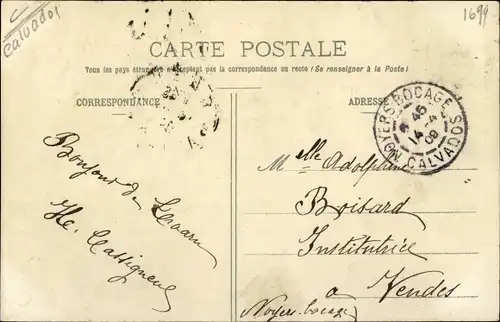 Calvados
1699
CARTE POSTALE
Tous les pays étrangers n'acceptent pas la correspondance au recto (Se renseigner à la Poste)
CORRESPONDANCE
ADRESSE
NOYERS-BOCAGE
8 45
14 - 4
09
CALVADOS
Bonjour de
H. Cassigneul
Melle Adolphine
Boisard
Institutrice
a Vendes
Noyers-bocage